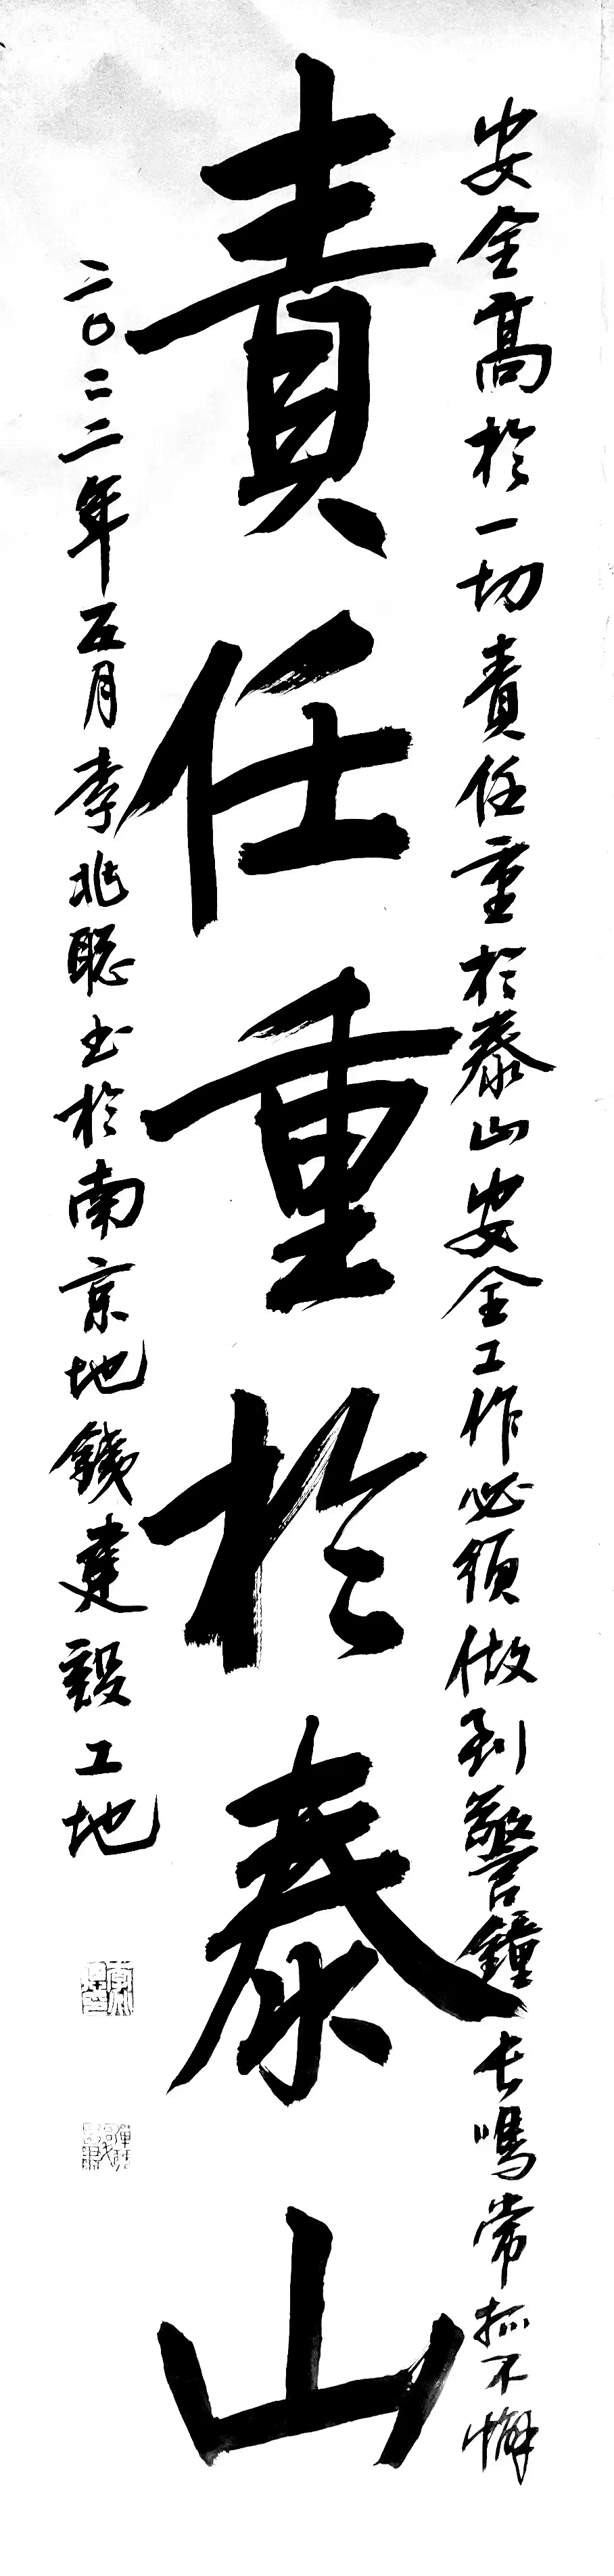 安全高於一切責任重於泰山安全工作必須做到警鐘長鳴常抓不懈
責任重於泰山
二〇二二年五月李兆聪书於南京地鐵建設工地